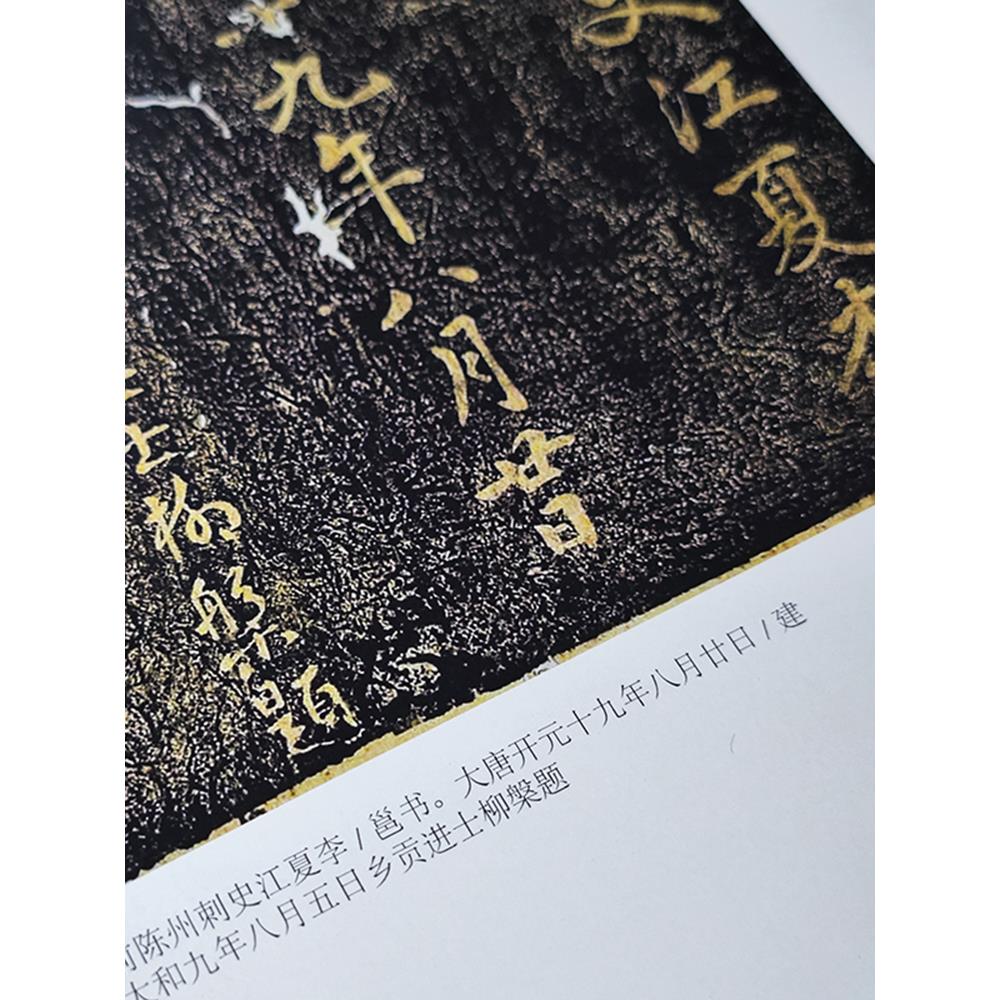 江夏
九年八月廿日
士柳槃題
陈州刺史江夏李 / 邕书。大唐开元十九年八月廿日 / 建
和九年八月五日乡贡进士柳槃题